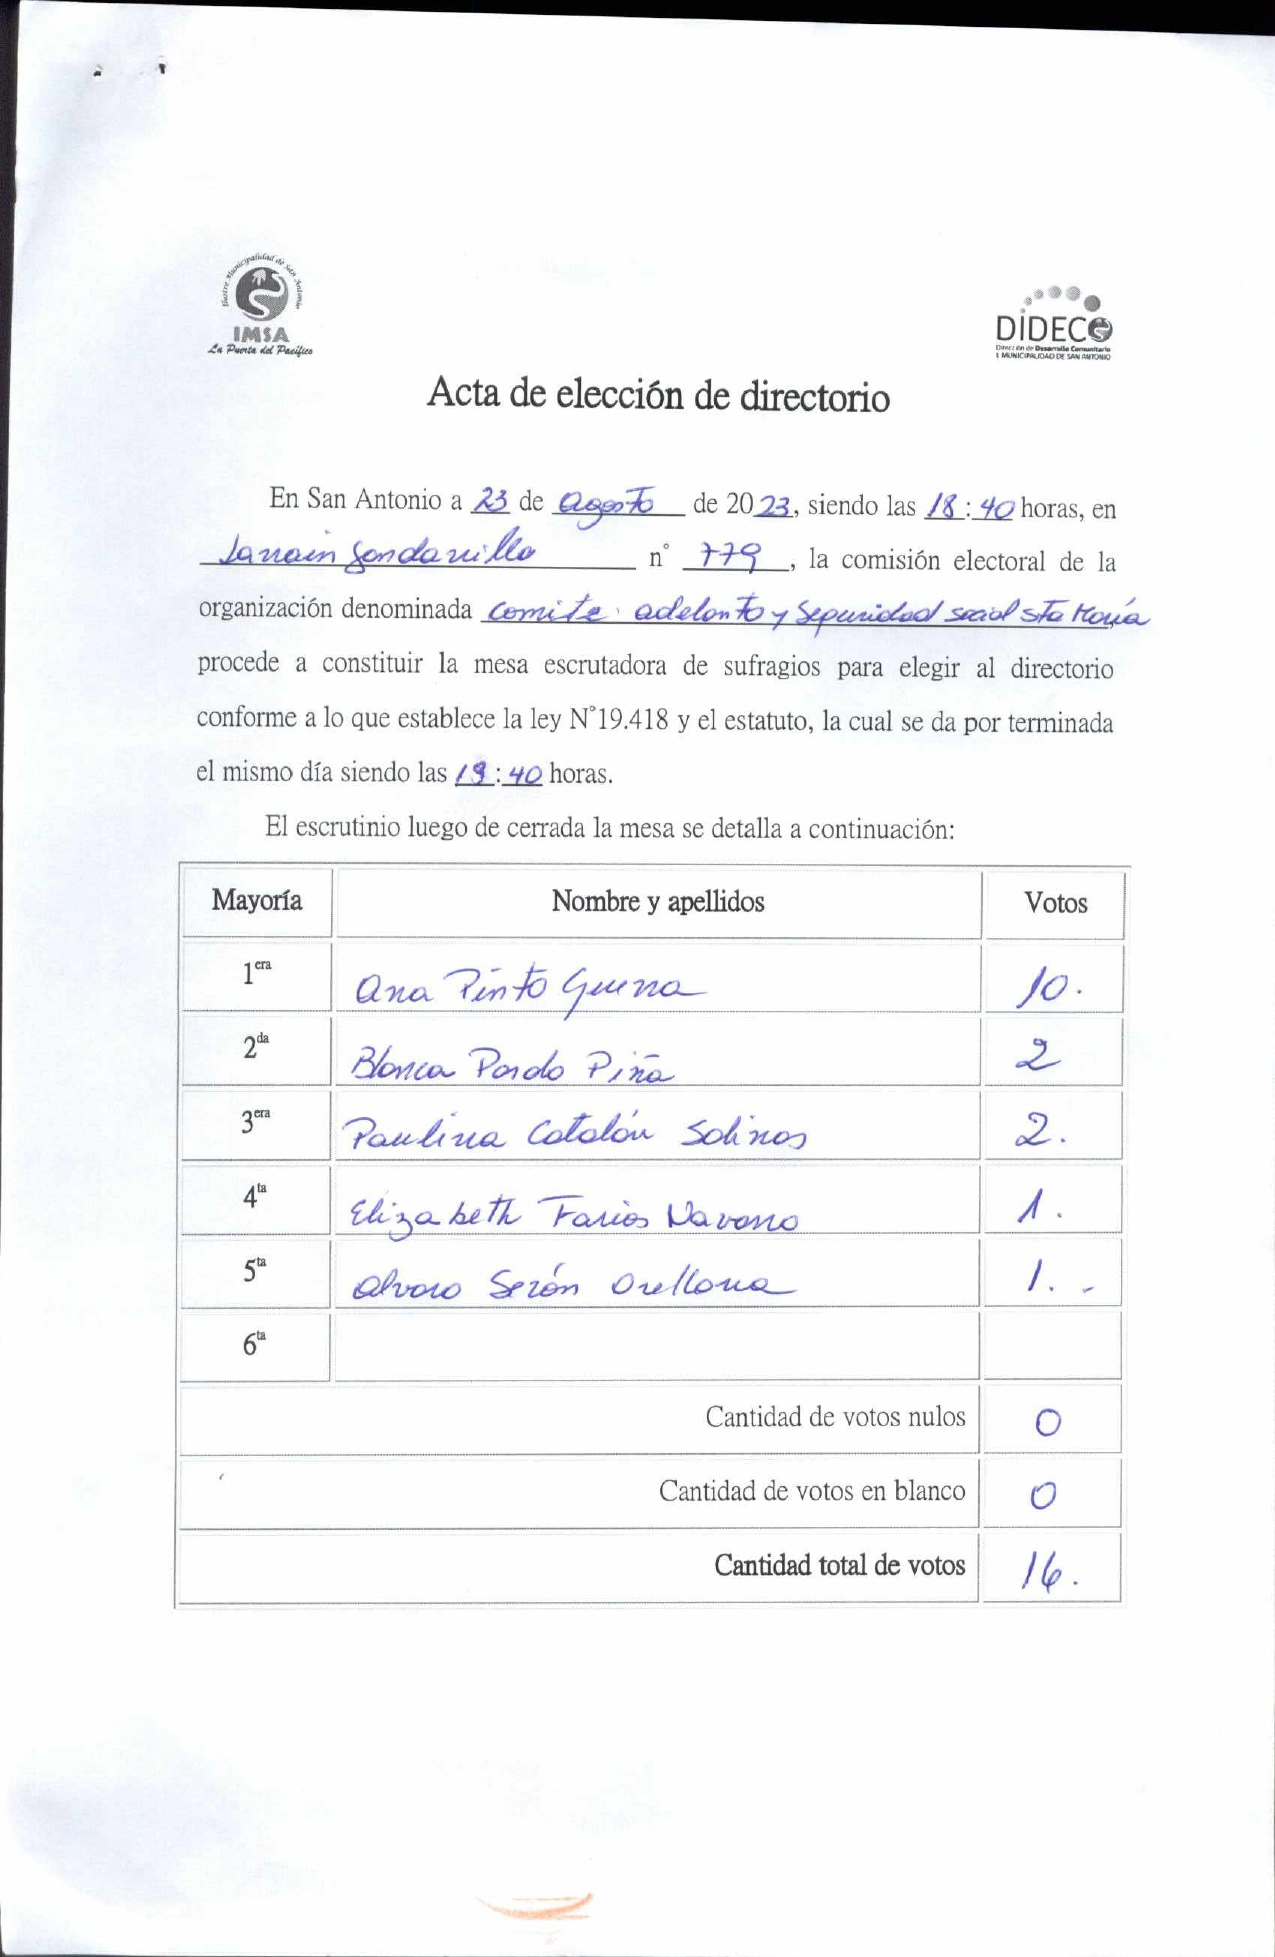 Ilustre Municipalidad de San Antonio
IMSA
La Puerta del Pacífico
DIDECO
Dirección de Desarrollo Comunitario
I. MUNICIPALIDAD DE SAN ANTONIO
Acta de elección de directorio
En San Antonio a 23 de Agosto de 2023, siendo las 18:40 horas, en
n° 779, la comisión electoral de la
organización denominada Comite adelanto y Seguridad social sta María
procede a constituir la mesa escrutadora de sufragios para elegir al directorio
conforme a lo que establece la ley N°19.418 y el estatuto, la cual se da por terminada
el mismo día siendo las 19:40 horas.
El escrutinio luego de cerrada la mesa se detalla a continuación:
Mayoría Nombre y apellidos Votos
1era Ana Pinto Guerra 10.
2da Blanca Pardo Piña 2
3era Paulina Catalán Salinas 2.
4ta Elizabeth Farias Navarro 1.
5ta Alvaro Serón Orellana 1.-
6ta
Cantidad de votos nulos 0
Cantidad de votos en blanco 0
Cantidad total de votos 16.